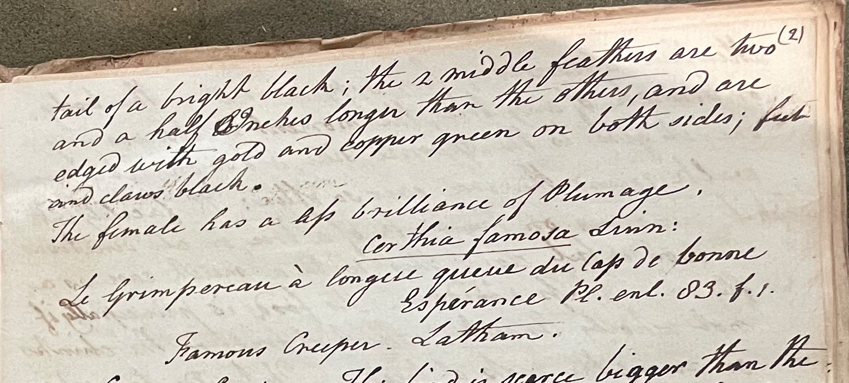 (2)
tail of a bright black; the 2 middle feathers are two
and a half Inches longer than the others, and are
edged with gold and copper green on both sides; feet
and claws black.
The female has a less brilliance of Plumage.
Certhia famosa Linn:
Le Grimpereau à longue queue du Cap de bonne
Espérance Pl. enl. 83. f. 1.
Famous Creeper. Latham.
This bird is scarce bigger than the